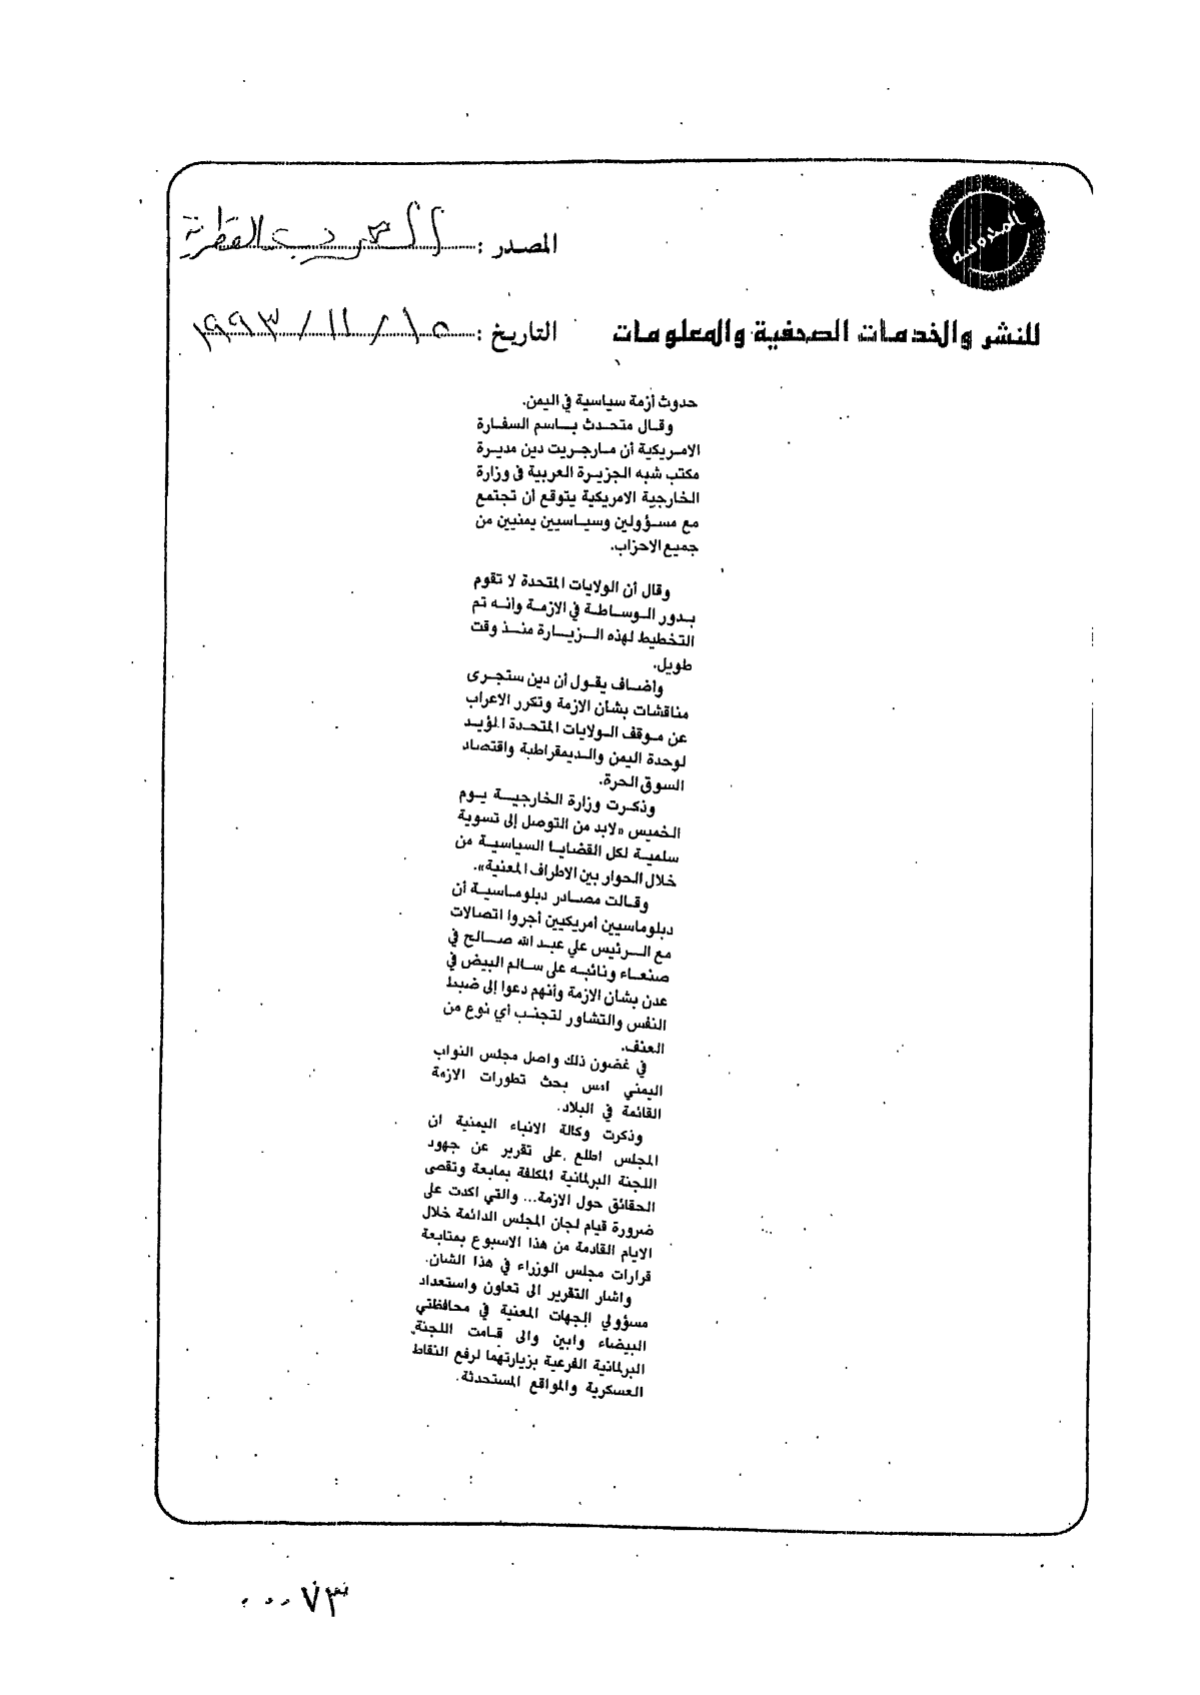 المدروسه
المصدر : العرب القطرية
للنشر والخدمات الصحفية والمعلومات
التاريخ : ١٥ / ١١ / ١٩٩٣
حدوث أزمة سياسية في اليمن.
وقال متحدث باسم السفارة
الامريكية أن مارجريت دين مديرة
مكتب شبه الجزيرة العربية في وزارة
الخارجية الامريكية يتوقع أن تجتمع
مع مسؤولين وسياسيين يمنيين من
جميع الاحزاب.
وقال أن الولايات المتحدة لا تقوم
بدور الوساطة في الازمة وانه تم
التخطيط لهذه الزيارة منذ وقت
طويل.
وأضاف يقول أن دين ستجرى
مناقشات بشان الازمة وتكرر الاعراب
عن موقف الولايات المتحدة المؤيد
لوحدة اليمن والديمقراطية واقتصاد
السوق الحرة.
وذكرت وزارة الخارجية يوم
الخميس «لابد من التوصل إلى تسوية
سلمية لكل القضايا السياسية من
خلال الحوار بين الاطراف المعنية».
وقالت مصادر دبلوماسية أن
دبلوماسيين أمريكيين أجروا اتصالات
مع الرئيس علي عبد الله صالح في
صنعاء ونائبه على سالم البيض في
عدن بشان الازمة وأنهم دعوا إلى ضبط
النفس والتشاور لتجنب أي نوع من
العنف.
في غضون ذلك واصل مجلس النواب
اليمني امس بحث تطورات الازمة
القائمة في البلاد.
وذكرت وكالة الانباء اليمنية ان
المجلس اطلع على تقرير عن جهود
اللجنة البرلمانية المكلفة بمابعة وتقصى
الحقائق حول الازمة... والتي اكدت على
ضرورة قيام لجان المجلس الدائمة خلال
الايام القادمة من هذا الاسبوع بمتابعة
قرارات مجلس الوزراء في هذا الشان.
واشار التقرير الى تعاون واستعداد
مسؤولي الجهات المعنية في محافظتي
البيضاء وابين والى قامت اللجنة
البرلمانية الفرعية بزيارتهما لرفع النقاط
العسكرية والمواقع المستحدثة.
٠٠٠٧٣